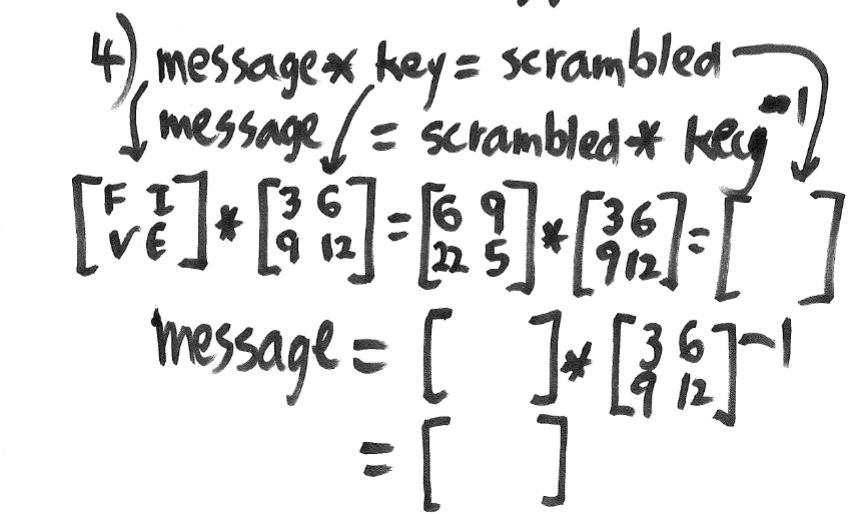 4) message * key = scrambled
message = scrambled * key⁻¹
[F I] * [3 6] = [6 9] * [3 6] = [ ]
[V E] [9 12] [22 5] [9 12]
message = [ ] * [3 6]⁻¹
[9 12]
= [ ]